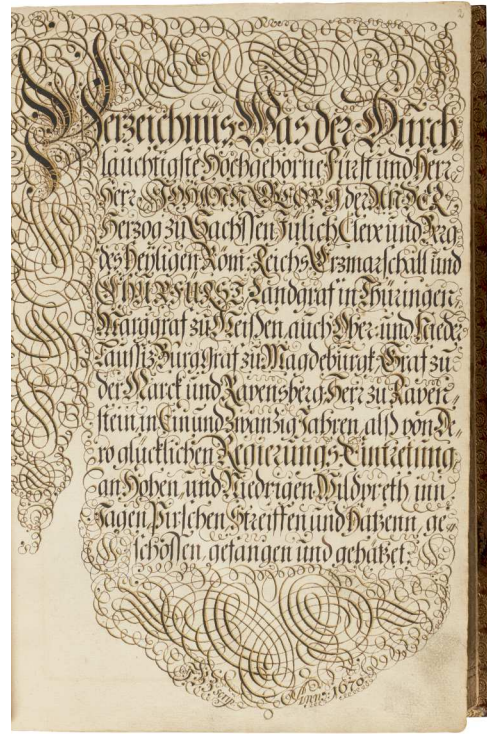 Verzeichnüs Was der Durch⸗
lauchtigste Hochgeborne Fürst und Herr,
Herr JOHANN GEORG der ANDER,
Herzog zu Sachssen Jülich Cleve und Berg
des Heyligen Röm: Reichs Erzmarschall und
CHURFÜRST, Landgraf in Thüringen,
Marggraf zu Meissen, auch Ober- und Nieder
Laussiz Burggraf zu Magdeburgk, Graf zu
der Marck und Ravensberg, Herr zu Raven⸗
stein, in Ein und Zwanzig Jahren, alß von De⸗
ro glücklichen Regierungs Eintretung
an Hohen und Niedrigen Wildpreth inn
Jagen, Pirschen, Streiffen und Hatzenn, ge⸗
schossen, gefangen und gehatzet.
scrip.
1679